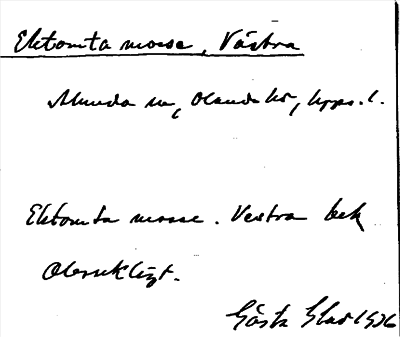 Ektomta mosse, Västra
Almunda sn, Olands hd, Upps. l.
Ektomta mosse. Västra bek
Obrukligt.
Gösta Glad 1936